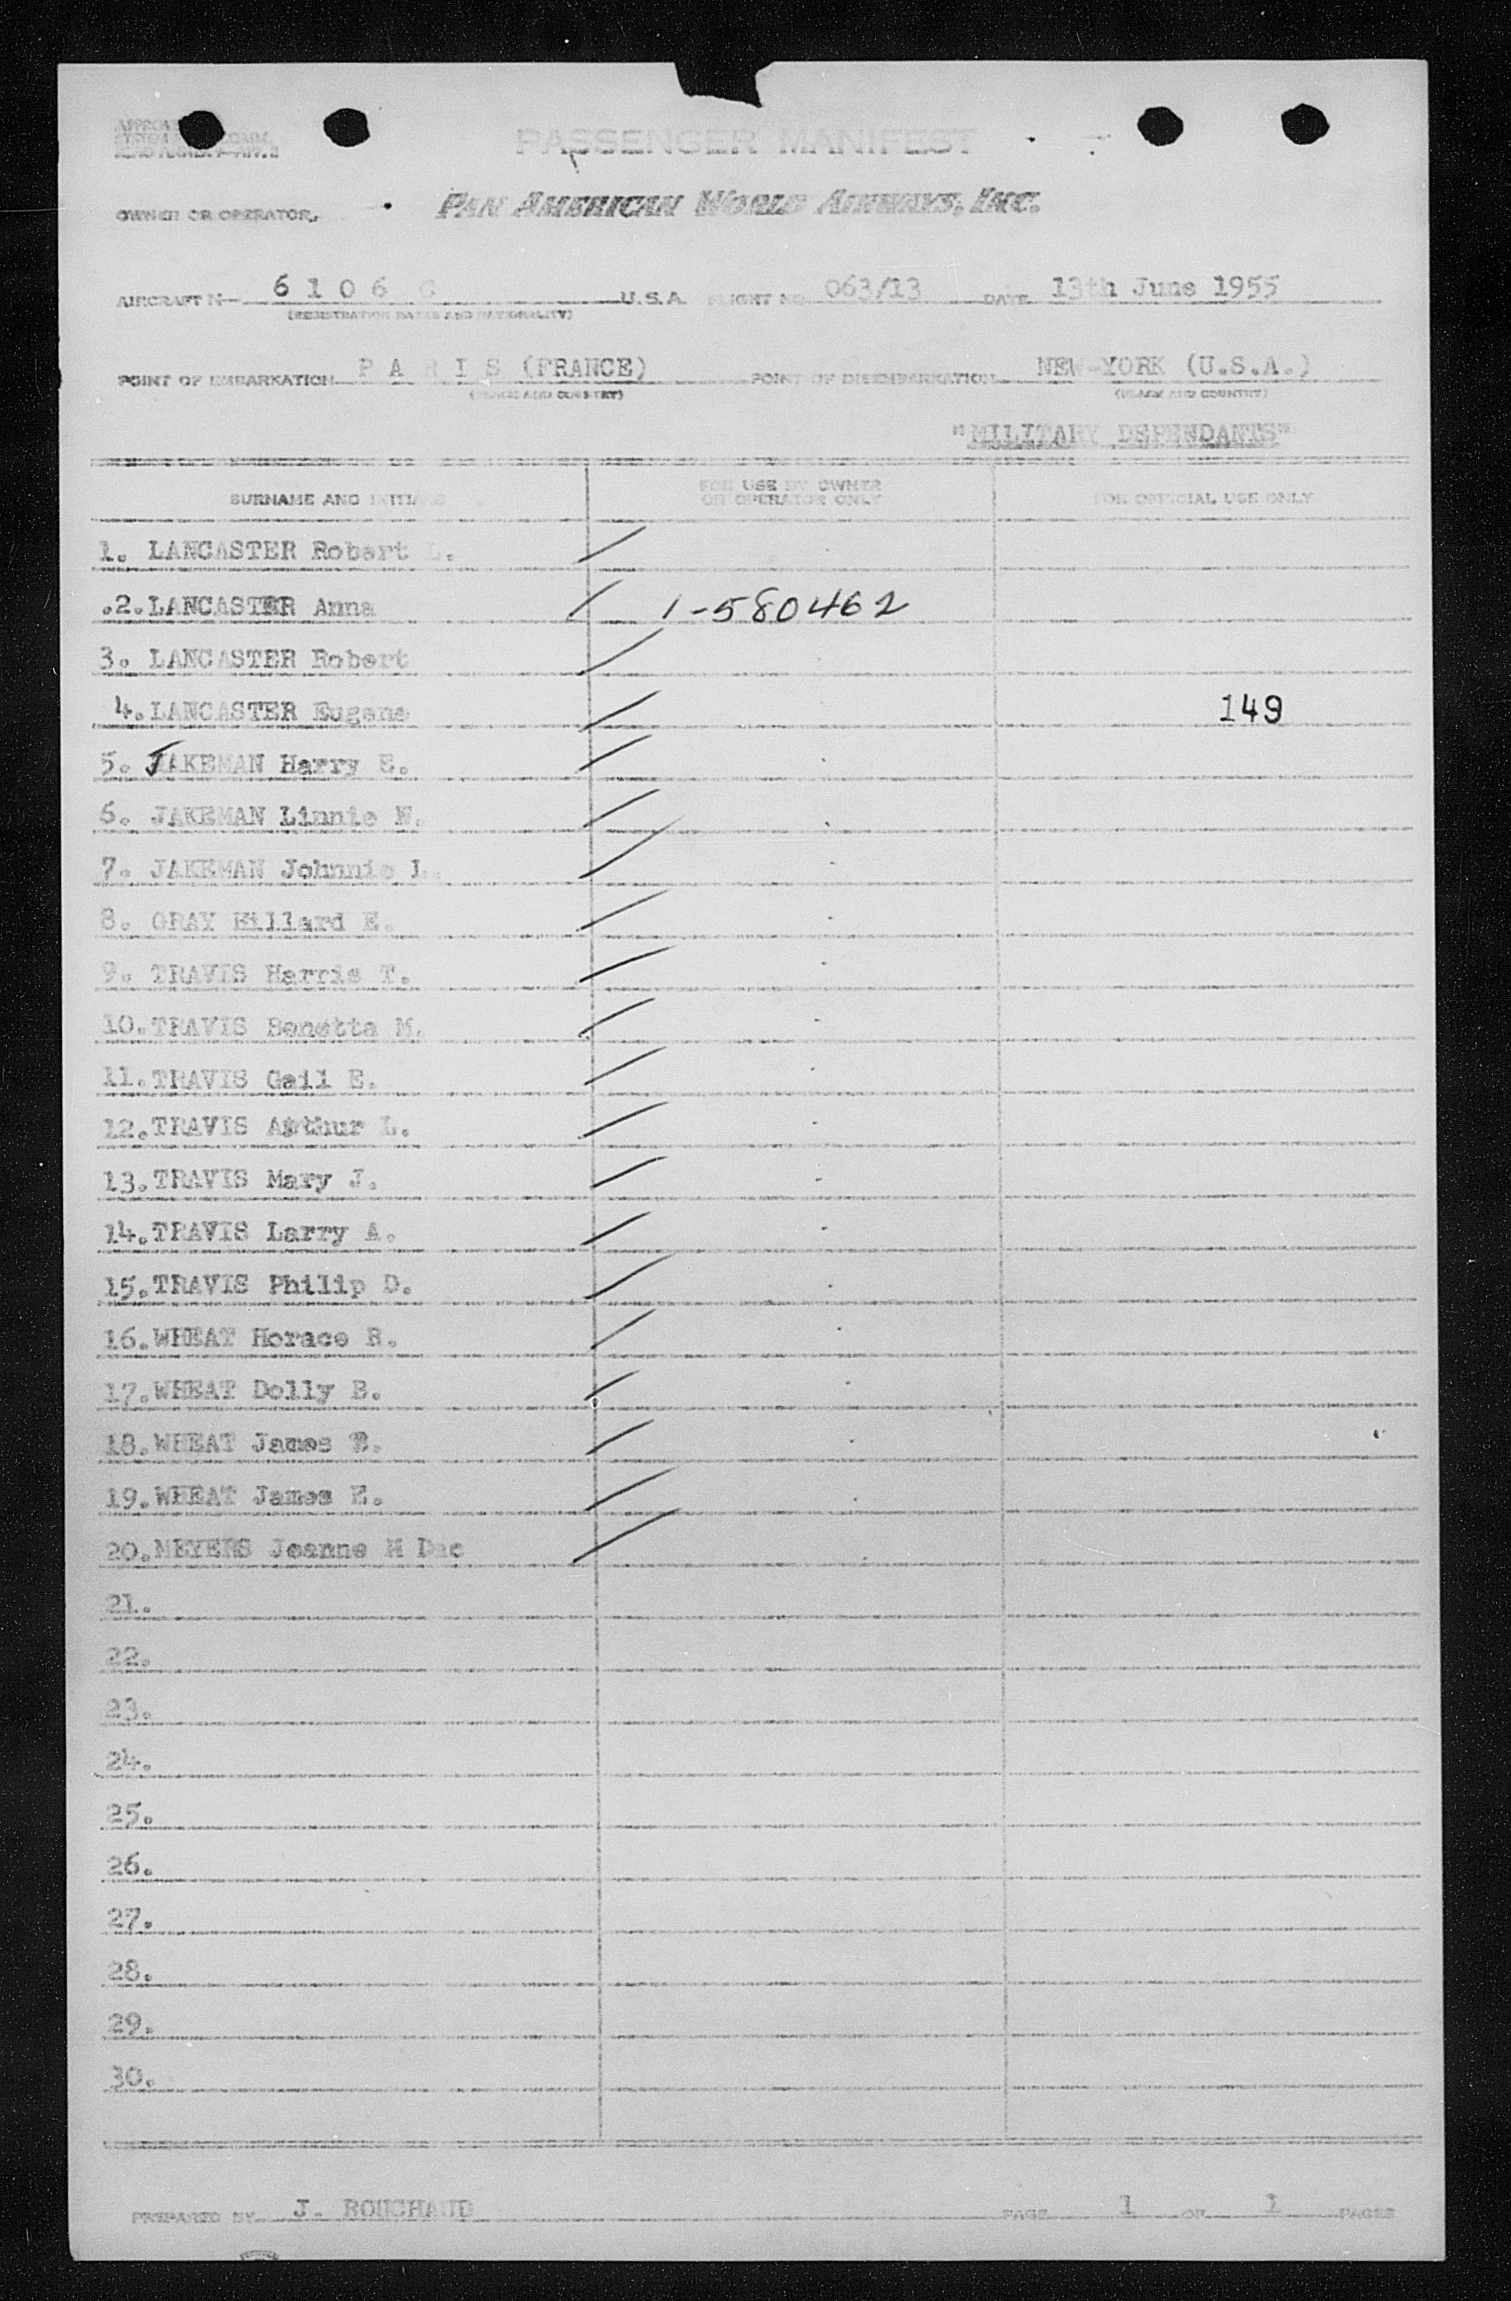 PASSENGER MANIFEST
OWNER OR OPERATOR, PAN AMERICAN WORLD AIRWAYS, INC.
AIRCRAFT N— 6 1 0 6 C U.S.A. FLIGHT NO 063/13 DATE 13th June 1955
(REGISTRATION MARKS AND NATIONALITY)
POINT OF EMBARKATION P A R I S (FRANCE) POINT OF DISEMBARKATION NEW-YORK (U.S.A.)
(PLACE AND COUNTRY) (PLACE AND COUNTRY)
"MILITARY DEPENDANTS"
SURNAME AND INITIALS FOR USE BY OWNER OR OPERATOR ONLY FOR OFFICIAL USE ONLY
1. LANCASTER Robert L. /
.2. LANCASTER Anna / 1-580462
3. LANCASTER Robert /
4. LANCASTER Eugene / 149
5. JAKEMAN Harry E. /
6. JAKEMAN Linnie N. /
7. JAKEMAN Johnnie L. /
8. GRAY Hillard E. /
9. TRAVIS Harris T. /
10. TRAVIS Benetta M. /
11. TRAVIS Gail E. /
12. TRAVIS Arthur L. /
13. TRAVIS Mary J. /
14. TRAVIS Larry A. /
15. TRAVIS Philip D. /
16. WHEAT Horace R. /
17. WHEAT Dolly B. /
18. WHEAT James B. /
19. WHEAT James E. /
20. MEYERS Jeanne M Dac /
21.
22.
23.
24.
25.
26.
27.
28.
29.
30.
PREPARED BY J. ROUCHAUD PAGE 1 OF 1 PAGES